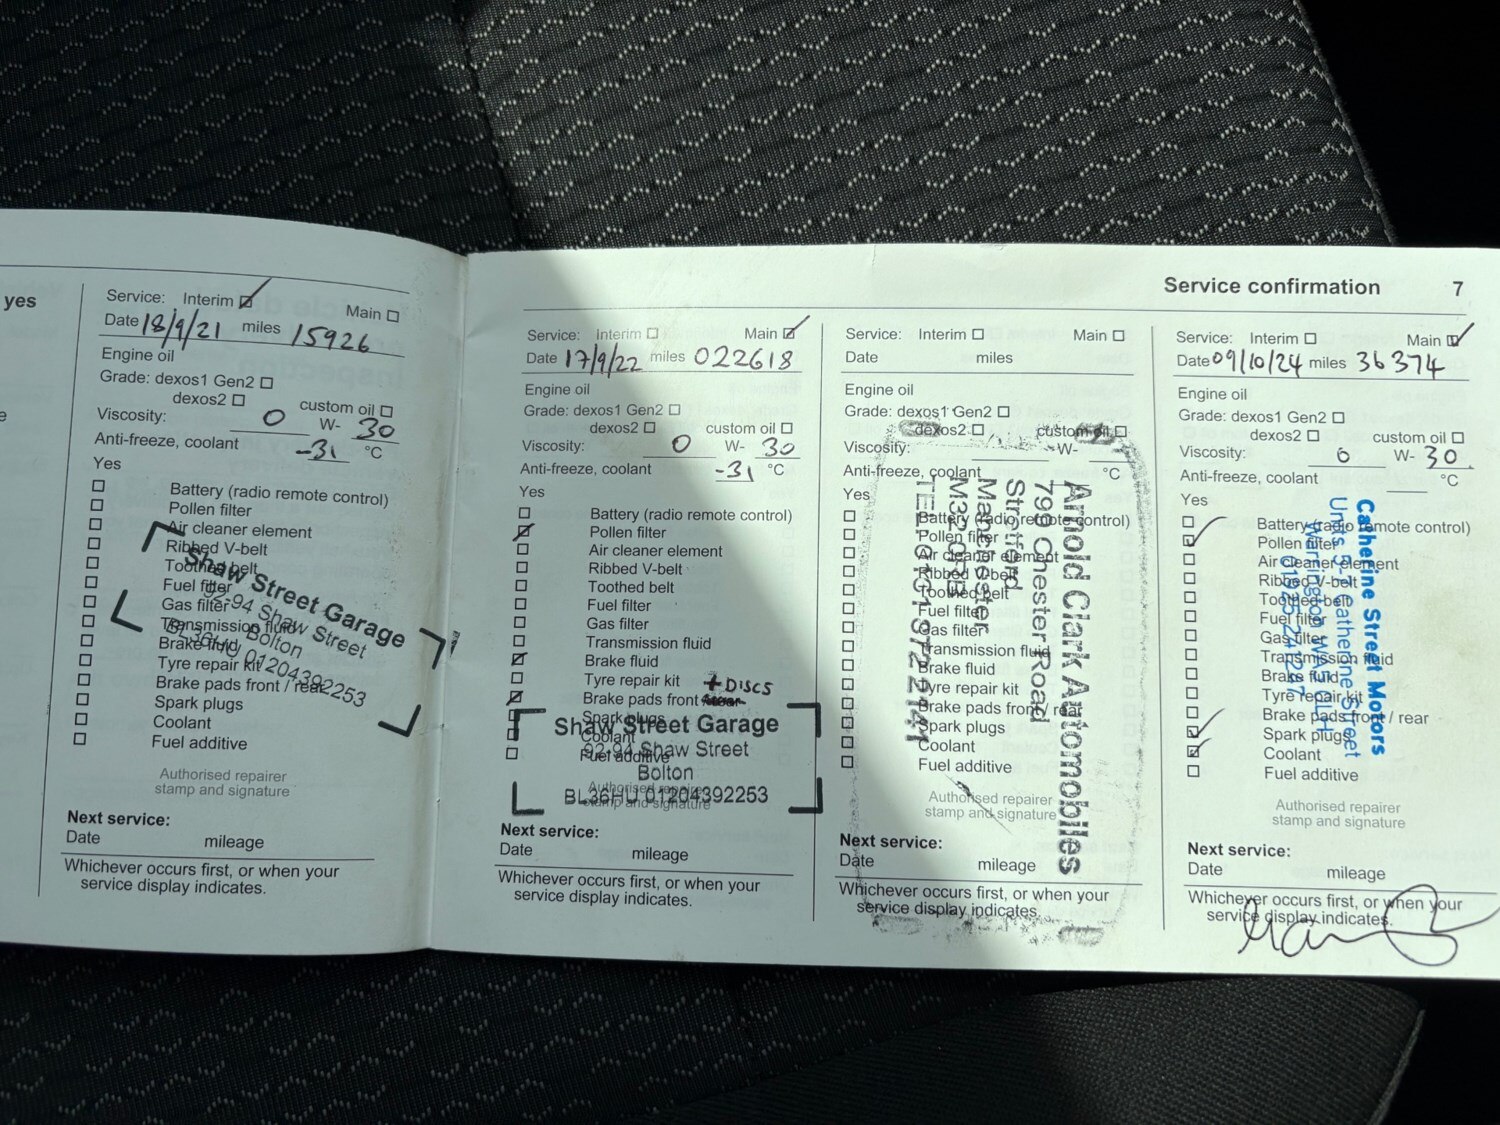 yes
Service: Interim Main
Date 18/9/21 miles 15926
Engine oil
Grade: dexos1 Gen2
dexos2 custom oil
Viscosity: 0 W- 30
Anti-freeze, coolant -31 °C
Yes
Battery (radio remote control)
Pollen filter
Air cleaner element
Ribbed V-belt
Toothed belt
Fuel filter
Gas filter
Transmission fluid
Brake fluid
Tyre repair kit
Brake pads front / rear
Spark plugs
Coolant
Fuel additive
Shaw Street Garage
92-94 Shaw Street
Bolton
BL36HU 01204392253
Authorised repairer
stamp and signature
Next service:
Date mileage
Whichever occurs first, or when your
service display indicates.
Service confirmation 7
Service: Interim Main
Date 17/9/22 miles 022618
Engine oil
Grade: dexos1 Gen2
dexos2 custom oil
Viscosity: 0 W- 30
Anti-freeze, coolant -31 °C
Yes
Battery (radio remote control)
Pollen filter
Air cleaner element
Ribbed V-belt
Toothed belt
Fuel filter
Gas filter
Transmission fluid
Brake fluid
Tyre repair kit + DISCS
Brake pads front / rear
Spark plugs
Coolant
Fuel additive
Shaw Street Garage
92-94 Shaw Street
Bolton
BL36HU 01204392253
Authorised repairer
stamp and signature
Next service:
Date mileage
Whichever occurs first, or when your
service display indicates.
Service: Interim Main
Date miles
Engine oil
Grade: dexos1 Gen2
dexos2 custom oil
Viscosity: W-
Anti-freeze, coolant °C
Yes
Battery (radio remote control)
Pollen filter
Air cleaner element
Ribbed V-belt
Toothed belt
Fuel filter
Gas filter
Transmission fluid
Brake fluid
Tyre repair kit
Brake pads front / rear
Spark plugs
Coolant
Fuel additive
Arnold Clark Automobiles
799 Chester Road
Stretford
Manchester
Authorised repairer
stamp and signature
Next service:
Date mileage
Whichever occurs first, or when your
service display indicates.
Service: Interim Main
Date 09/10/24 miles 36374
Engine oil
Grade: dexos1 Gen2
dexos2 custom oil
Viscosity: 0 W- 30
Anti-freeze, coolant °C
Yes
Battery (radio remote control)
Pollen filter
Air cleaner element
Ribbed V-belt
Toothed belt
Fuel filter
Gas filter
Transmission fluid
Brake fluid
Tyre repair kit
Brake pads front / rear
Spark plugs
Coolant
Fuel additive
Catherine Street Motors
Catherine Street
Warrington
Authorised repairer
stamp and signature
Next service:
Date mileage
Whichever occurs first, or when your
service display indicates.